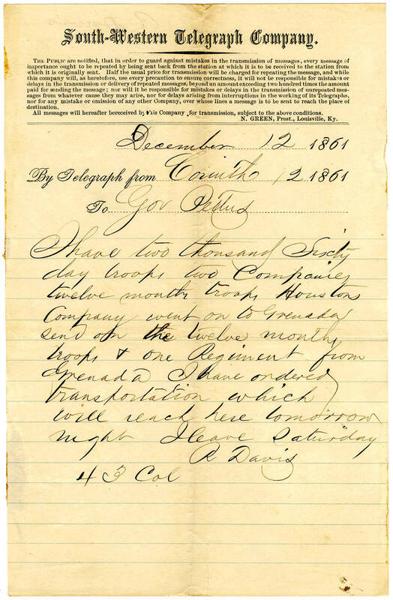 South-Western Telegraph Company.
THE PUBLIC are notified, that in order to guard against mistakes in the transmission of messages, every message of
importance ought to be repeated by being sent back from the station at which it is to be received to the station from
which it is originally sent. Half the usual price for transmission will be charged for repeating the message, and while
this company will, as heretofore, use every precaution to ensure correctness, it will not be responsible for mistakes or
delays in the transmission of repeated messages, beyond an amount exceeding two hundred times the amount
paid for sending the message; nor will it be responsible for mistakes or delays in the transmission of unrepeated
messages from whatever cause they may arise, nor for delays arising from interruptions in the working of its Telegraphs,
nor for any mistake or omission of any other Company, over whose lines a message is to be sent to reach the place of
destination.
All messages will hereafter be received by this Company for transmission, subject to the above conditions.
N. GREEN, Prest., Louisville, Ky.
December 12 1861
By Telegraph from Corinth 12 1861
To Gov Pettus
I have two thousand Sixty
day troops two Companies
twelve months troops Houston
Company went on to Grenada
send on the twelve months
troops & one Regiment from
Grenada I have ordered
transportation which
will reach here tomorrow
night I leave Saturday
R Davis
43 Col